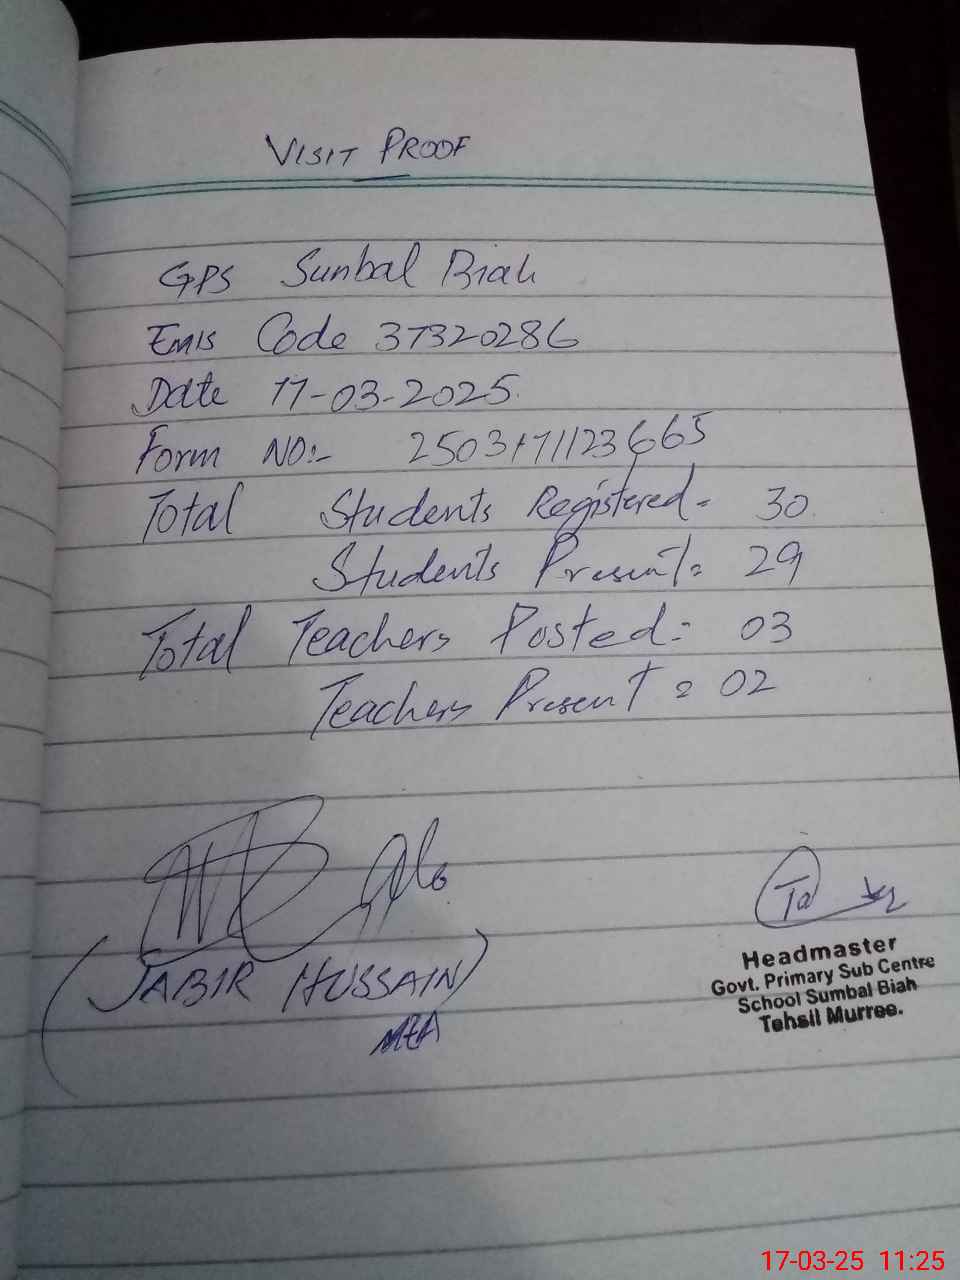 VISIT PROOF
GPS Sunbal Biah
Emis Code 37320286
Date 17-03-2025.
Form NO:- 2503171123665
Total Students Registered = 30
Students Present = 29
Total Teachers Posted = 03
Teachers Present = 02
(JABIR HUSSAIN)
MEA
Headmaster
Govt. Primary Sub Centre
School Sumbal Biah
Tehsil Murree.
17-03-25 11:25